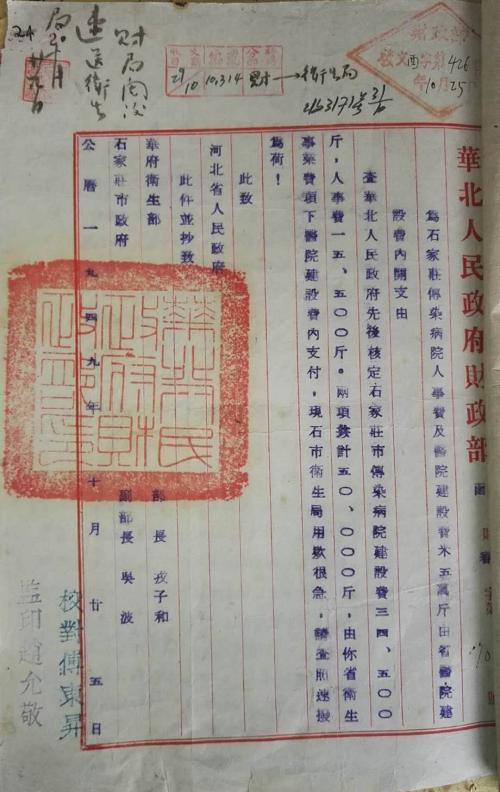 華北人民政府財政部
函
為石家莊傳染病院人事費及醫院建設費米五萬斤由省醫院建
設費內開支由
查華北人民政府先後核定石家莊市傳染病院建設費三四、五〇〇
斤，人事費一五、五〇〇斤。兩項共計五〇、〇〇〇斤，由你省衛生
事業費項下醫院建設費內支付，現石市衛生局用欵很急，請查照速撥
為荷！
此致
河北省人民政府
此件並抄致
華府衛生部
石家莊市政府
部長 戎子和
副部長 吳波
公曆一九四九年十月廿五日
校對傅東昇
監印趙允敬
財政部
發文酉字第426
年10月25
財→衛生局
財局閱後
速送衛生
局